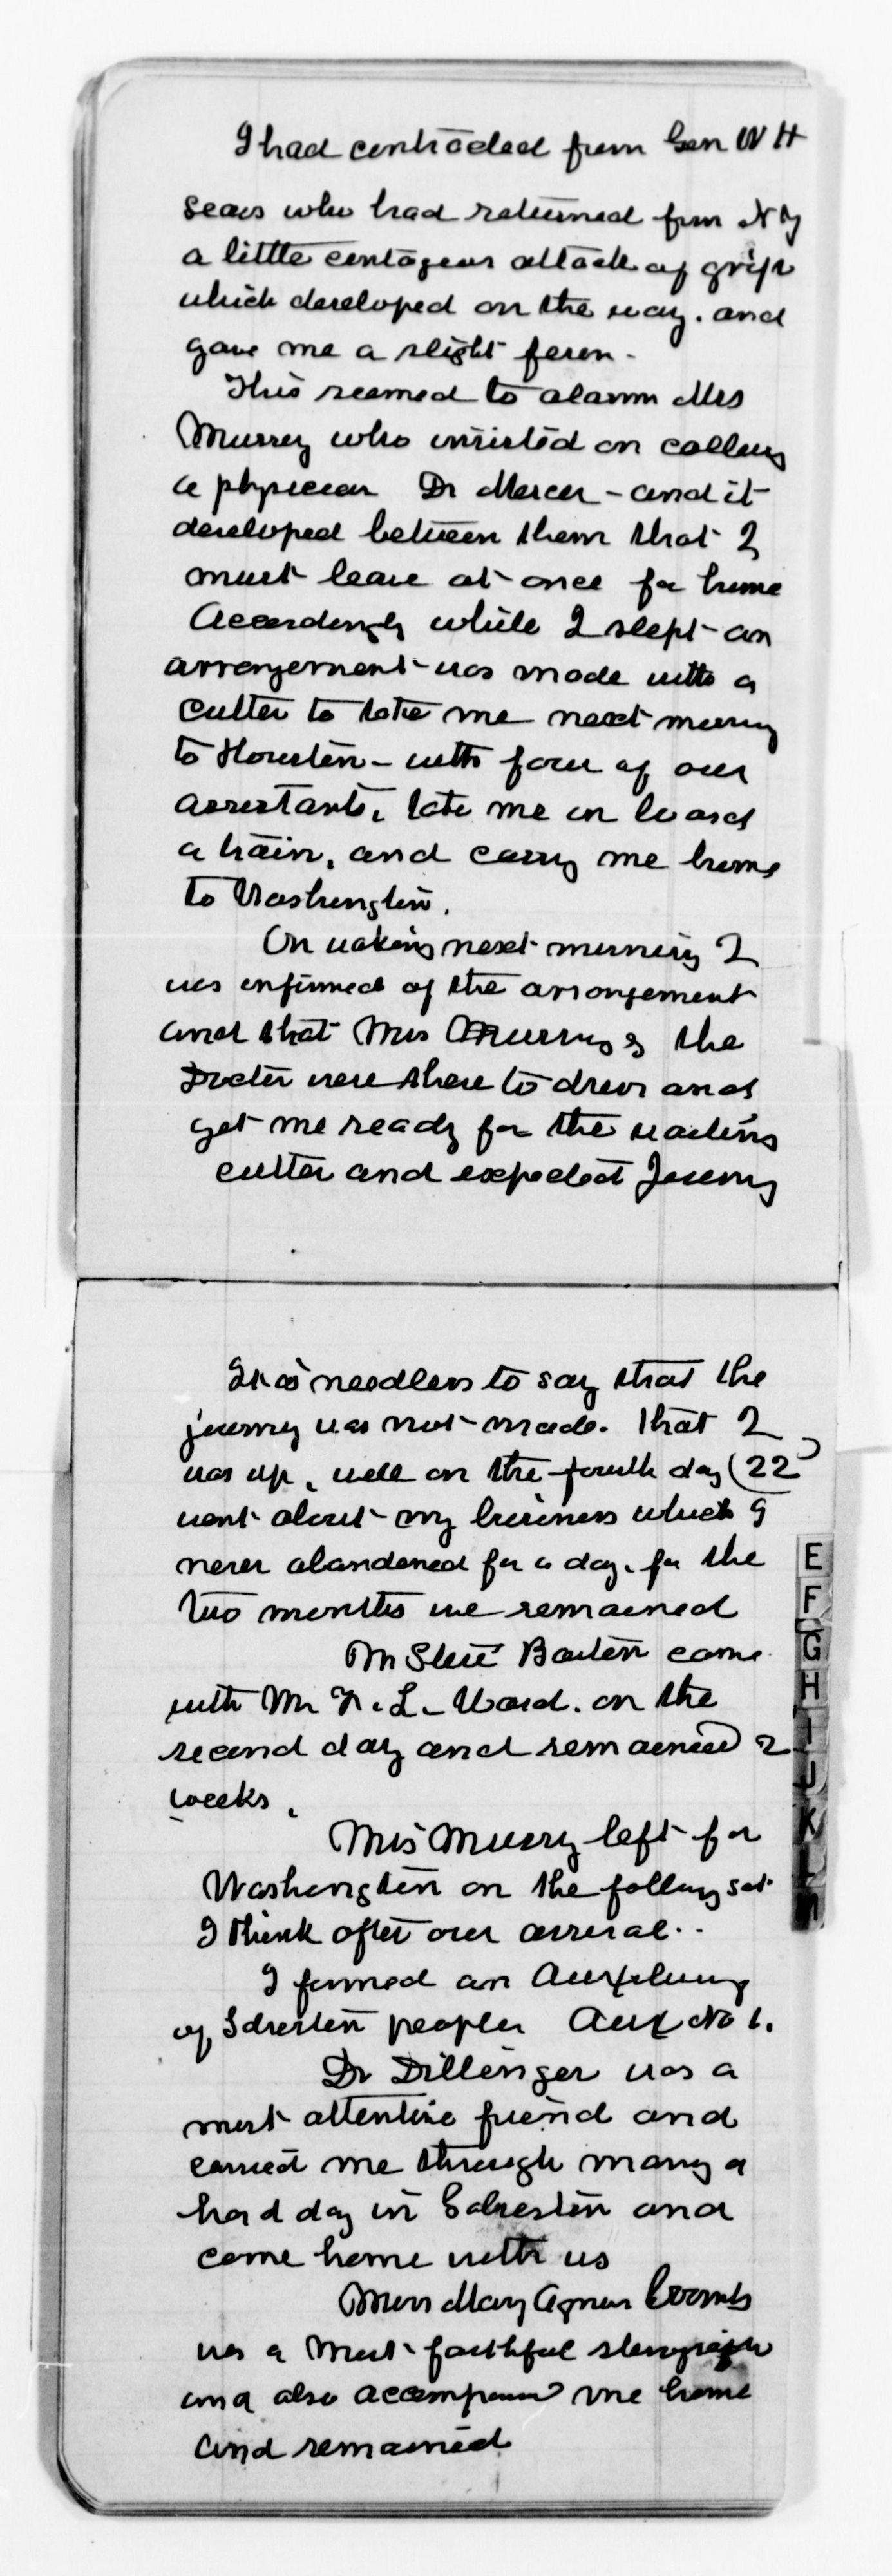 I had contracted from Gen W H
Sears who had returned from N Y
a little contageous attack of grip
which developed on the way. and
gave me a slight fever.
This seemed to alarm Mrs
Murrey who insisted on calling
a physician Dr Mercer - and it
developed between them that I
must leave at once for home
Accordingly while I slept an
arrangement was made with a
cutter to take me next morning
to Houston - with four of our
assistants, take me on board
a train, and carry me home
to Washington.
On waking next morning I
was informed of the arrangement
and that Mrs Murrey & the
Doctor were there to dress and
get me ready for the waiting
cutter and expected Journey
It is needless to say that the
journey was not made. that I
was up, well on the fourth day (22)
went about my business which I
never abandoned for a day, for the
two months we remained
Mr Steve Barton came
with Mr F. L. Ward. on the
second day and remained 2
weeks.
Mrs Murry left for
Washington on the follong sat
I think after our arrival..
I formed an Auxiliary
of Galveston people Aux No 1.
Dr Dillinger was a
most attentive friend and
carried me through many a
hard day in Galveston and
came home with us
Miss Mary Agnes Coombs
was a most faithful
and also me home
and remained
E
F
G
H
I
J
K
L